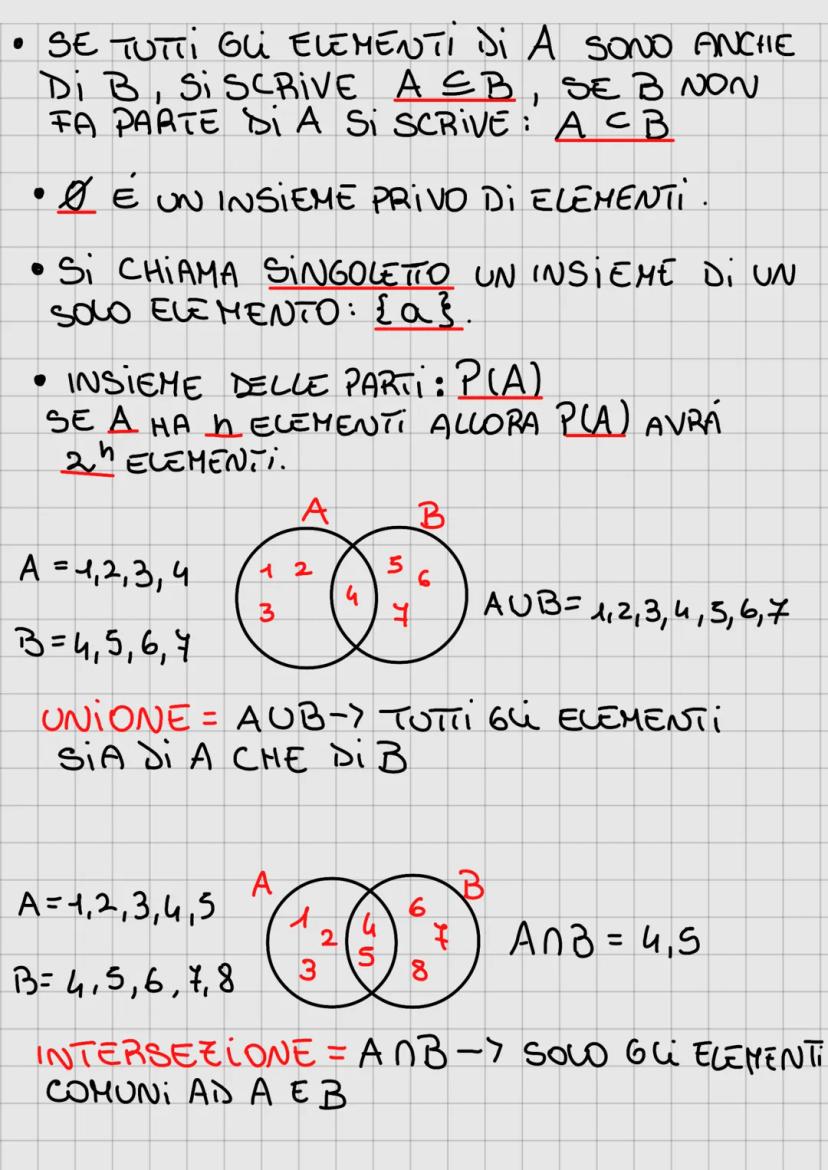 • SE TUTTI GLI ELEMENTI DI A SONO ANCHE
DI B, SI SCRIVE A ⊆ B, SE B NON
FA PARTE DI A SI SCRIVE: A ⊂ B
• Ø É UN INSIEME PRIVO DI ELEMENTI.
• SI CHIAMA SINGOLETTO UN INSIEME DI UN
SOLO ELEMENTO: {a}.
• INSIEME DELLE PARTI: P(A)
SE A HA n ELEMENTI ALLORA P(A) AVRÁ
2ⁿ ELEMENTI.
A B
A = 1,2,3,4
1 2 4 5 6
3 7
B = 4,5,6,7
A∪B = 1,2,3,4,5,6,7
UNIONE = A∪B -> TUTTI GLI ELEMENTI
SIA DI A CHE DI B
A B
A = 1,2,3,4,5
1 2 3 4 5 6 7 8
B = 4,5,6,7,8
A∩B = 4,5
INTERSEZIONE = A∩B -> SOLO GLI ELEMENTI
COMUNI AD A E B